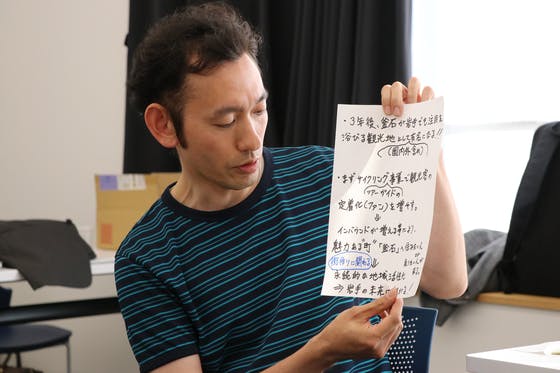 ・3年後、釜石が岩手でも注目を
浴びる観光地として有名になる!!
(国内外含め)
・まずサイクリング事業で観光客の
ツアーガイドの
定着化(ファン)を増やす。
⇓
インバウンドが増える事により、
魅力ある町"「釜石」へ
街作りに関わる
永続的な地域活性化
⇒ 岩手の未来